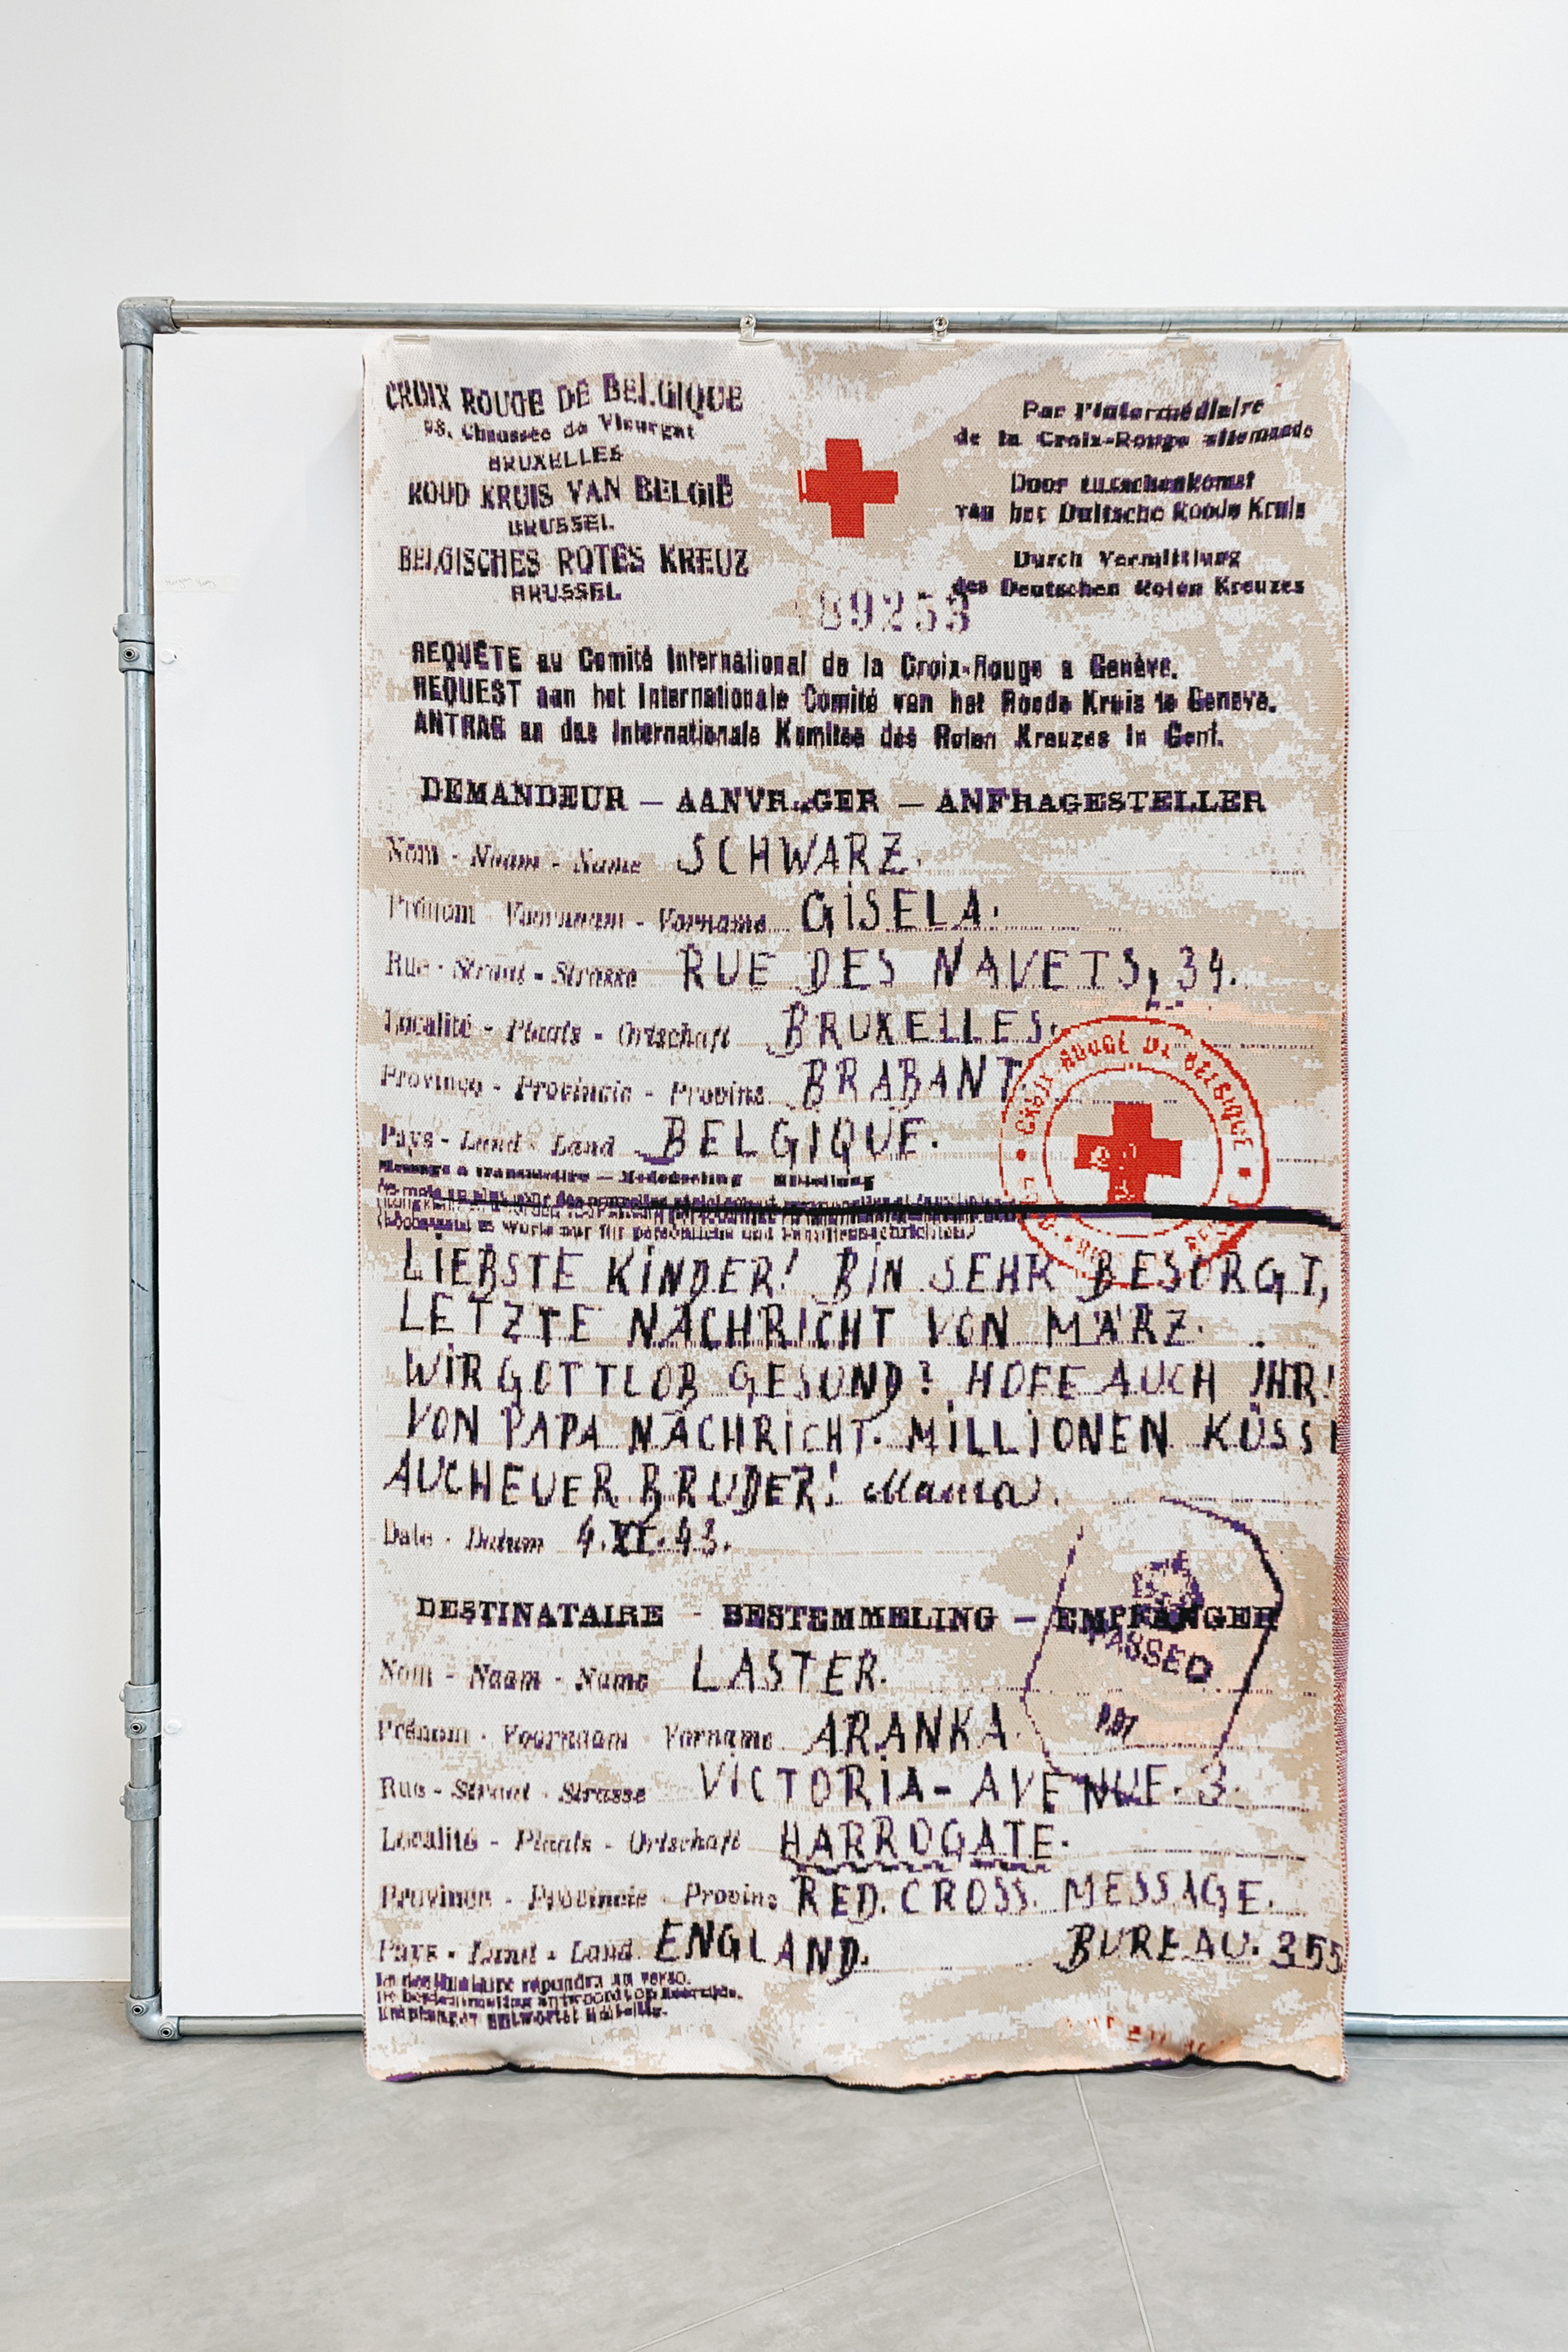 CROIX ROUGE DE BELGIQUE
98, Chaussée de Vleurgat
BRUXELLES
ROOD KRUIS VAN BELGIË
BRUSSEL
BELGISCHES ROTES KREUZ
BRUSSEL
Par l'intermédiaire
de la Croix-Rouge allemande
Door tusschenkomst
van het Duitsche Roode Kruis
Durch Vermittlung
des Deutschen Roten Kreuzes
89253
REQUÊTE au Comité International de la Croix-Rouge a Genève.
REQUEST aan het Internationale Comité van het Roode Kruis te Geneve.
ANTRAG an das Internationale Komitee des Roten Kreuzes in Genf.
DEMANDEUR — AANVRAGER — ANFRAGESTELLER
Nom - Naam - Name SCHWARZ.
Prénom - Voornaam - Vorname GISELA.
Rue - Straat - Strasse RUE DES NAVETS, 34.
Localité - Plaats - Ortschaft BRUXELLES.
Province - Provincie - Provinz BRABANT.
Pays - Land - Land BELGIQUE.
CROIX ROUGE DE BELGIQUE
Message à transmettre — Mededeeling — Mitteilung
LIEBSTE KINDER! BIN SEHR BESORGT,
LETZTE NACHRICHT VON MÄRZ.
WIR GOTTLOB GESUND? HOFE AUCH IHR!
VON PAPA NACHRICHT. MILLIONEN KÜSS
AUCH EUER BRUDER! Mama.
Date - Datum 4.XI.43.
DESTINATAIRE - BESTEMMELING — EMPFANGER
PASSED
Nom - Naam - Name LASTER.
Prénom - Voornaam - Vorname ARANKA.
Rue - Straat - Strasse VICTORIA-AVENUE. 3.
Localité - Plaats - Ortschaft HARROGATE.
Province - Provincie - Provinz RED. CROSS. MESSAGE.
Pays - Land - Land ENGLAND. BUREAU. 355
Le destinataire répondra au verso.